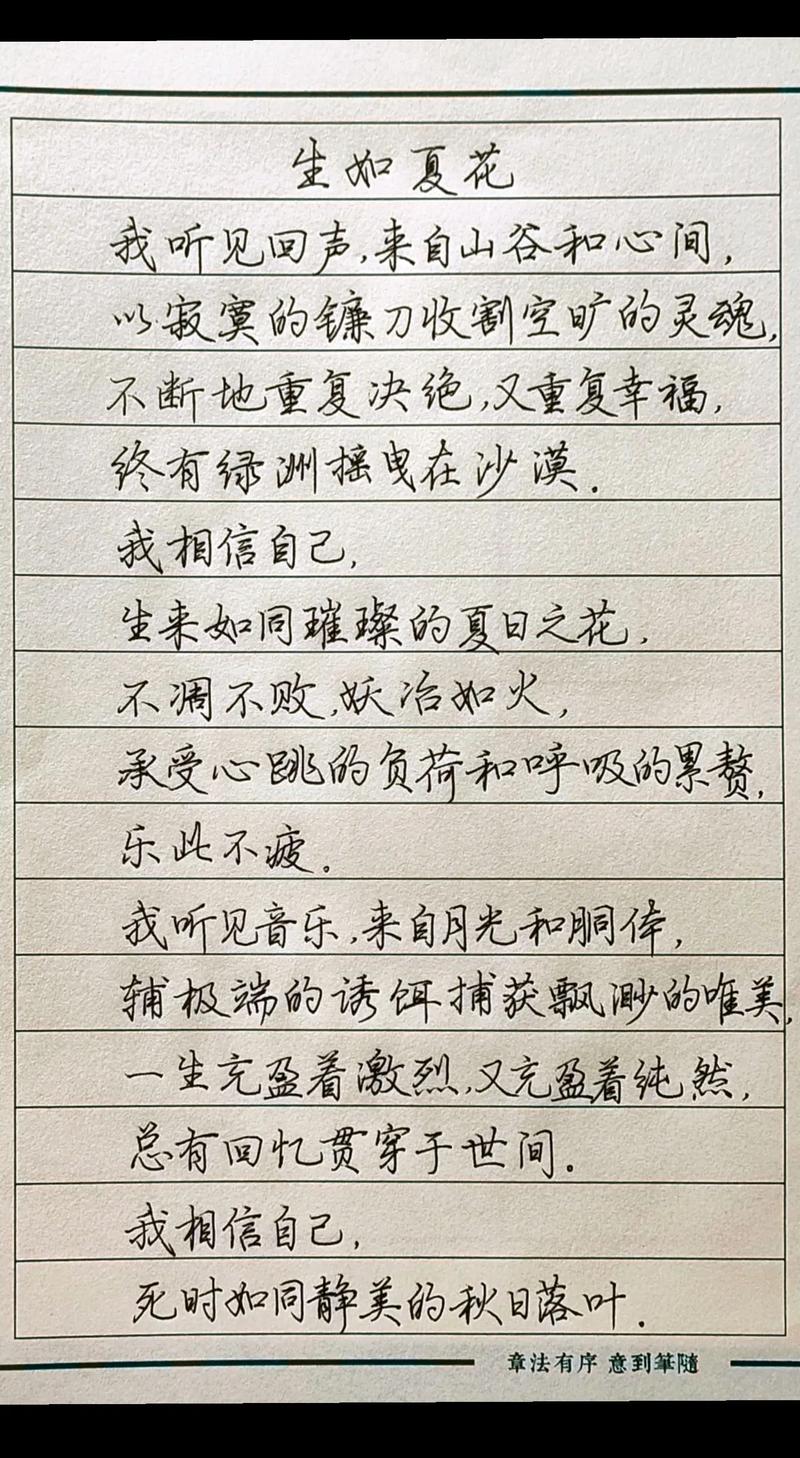 生如夏花
我听见回声,来自山谷和心间,
以寂寞的镰刀收割空旷的灵魂,
不断地重复决绝,又重复幸福,
终有绿洲摇曳在沙漠.
我相信自己,
生来如同璀璨的夏日之花,
不凋不败,妖冶如火,
承受心跳的负荷和呼吸的累赘,
乐此不疲。
我听见音乐,来自月光和胴体,
辅极端的诱饵捕获飘渺的唯美,
一生充盈着激烈,又充盈着纯然,
总有回忆贯穿于世间.
我相信自己,
死时如同静美的秋日落叶.
章法有序 意到筆隨